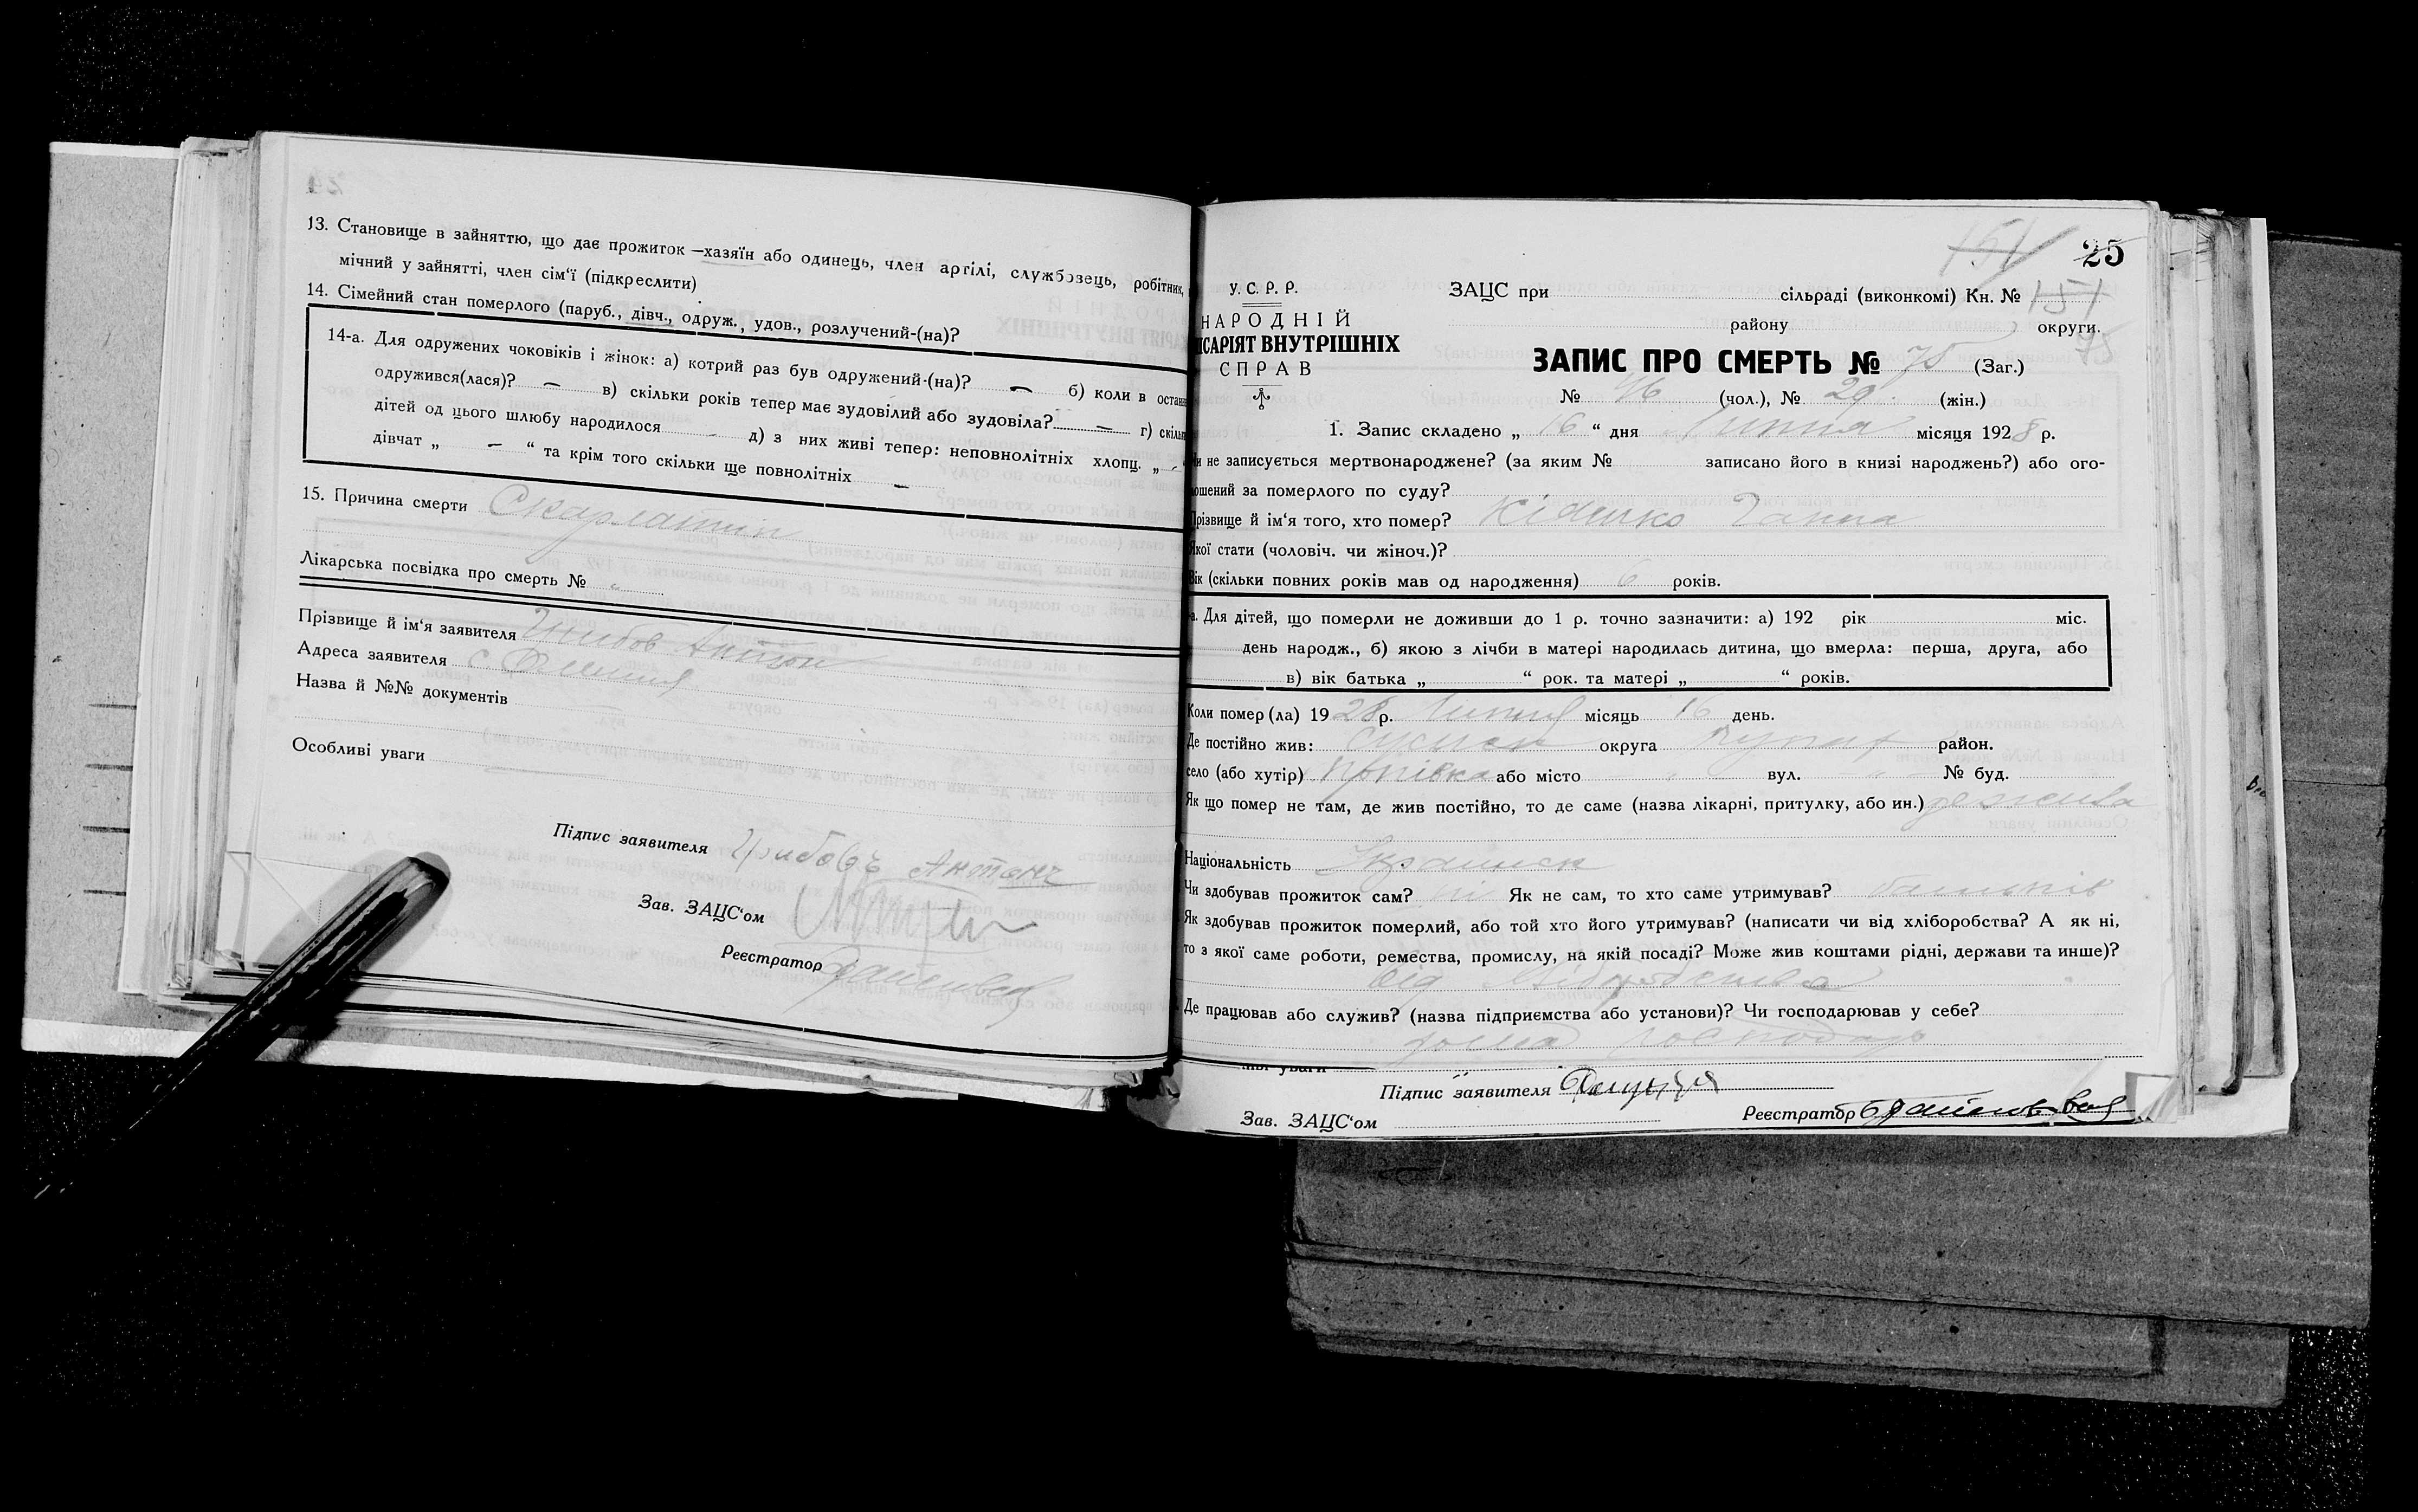 13. Становище в зайняттю, що дає прожиток —хазяїн або одинець, член артілі, службовець, робітник,
мічний у зайнятті, член сім'ї (підкреслити)
14. Сімейний стан померлого (паруб., дівч., одруж., удов., розлучений-(на)?
14-а. Для одружених чоковіків і жінок: а) котрий раз був одружений-(на)? — б) коли в останн
одружився(лася)? — в) скільки років тепер має зудовілий або зудовіла? — г) скільк
дітей од цього шлюбу народилося - д) з них живі тепер: неповнолітніх хлопц. „ -
дівчат „ — “ та крім того скільки ще повнолітніх —
15. Причина смерти Скарлатин
Лікарська посвідка про смерть № "
Прізвище й ім'я заявителя Грибов Антон
Адреса заявителя с.
Назва й №№ документів
Особливі уваги
Підпис заявителя Грибовъ Антонъ
Зав. ЗАЦС'ом
Реєстратор
151
25
У. С. Р. Р.
НАРОДНІЙ
ІСАРІЯТ ВНУТРІШНІХ
СПРАВ
ЗАЦС при сільраді (виконкомі) Кн. № 151
району округи.
75
ЗАПИС ПРО СМЕРТЬ № 75 (Заг.)
№ 46 (чол.), № 29 (жін.)
1. Запис складено „ 16 “ дня Липня місяця 1928 р.
Чи не записується мертвонароджене? (за яким № записано його в книзі народжень?) або ого-
лошений за померлого по суду?
Прізвище й ім'я того, хто помер? Ганна
Якої стати (чоловіч. чи жіноч.)?
Вік (скільки повних років мав од народження) 6 років.
а. Для дітей, що померли не доживши до 1 р. точно зазначити: а) 192 рік міс.
день народж., б) якою з лічби в матері народилась дитина, що вмерла: перша, друга, або
в) вік батька „ “ рок. та матері „ “ років.
Коли помер(ла) 1928 р. Липня місяць 16 день.
Де постійно жив: округа район.
село (або хутір) або місто " вул. " № буд.
Як що помер не там, де жив постійно, то де саме (назва лікарні, притулку, або ин.)
Національність Украінськ
Чи здобував прожиток сам? ні Як не сам, то хто саме утримував? батьків
Як здобував прожиток померлий, або той хто його утримував? (написати чи від хліборобства? А як ні,
то з якої саме роботи, ремества, промислу, на якій посаді? Може жив коштами рідні, держави та инше)?
від хліборобства
Де працював або служив? (назва підприємства або установи)? Чи господарював у себе?
дома господар
ливі уваги
Підпис заявителя
Зав. ЗАЦС'ом Реєстратор